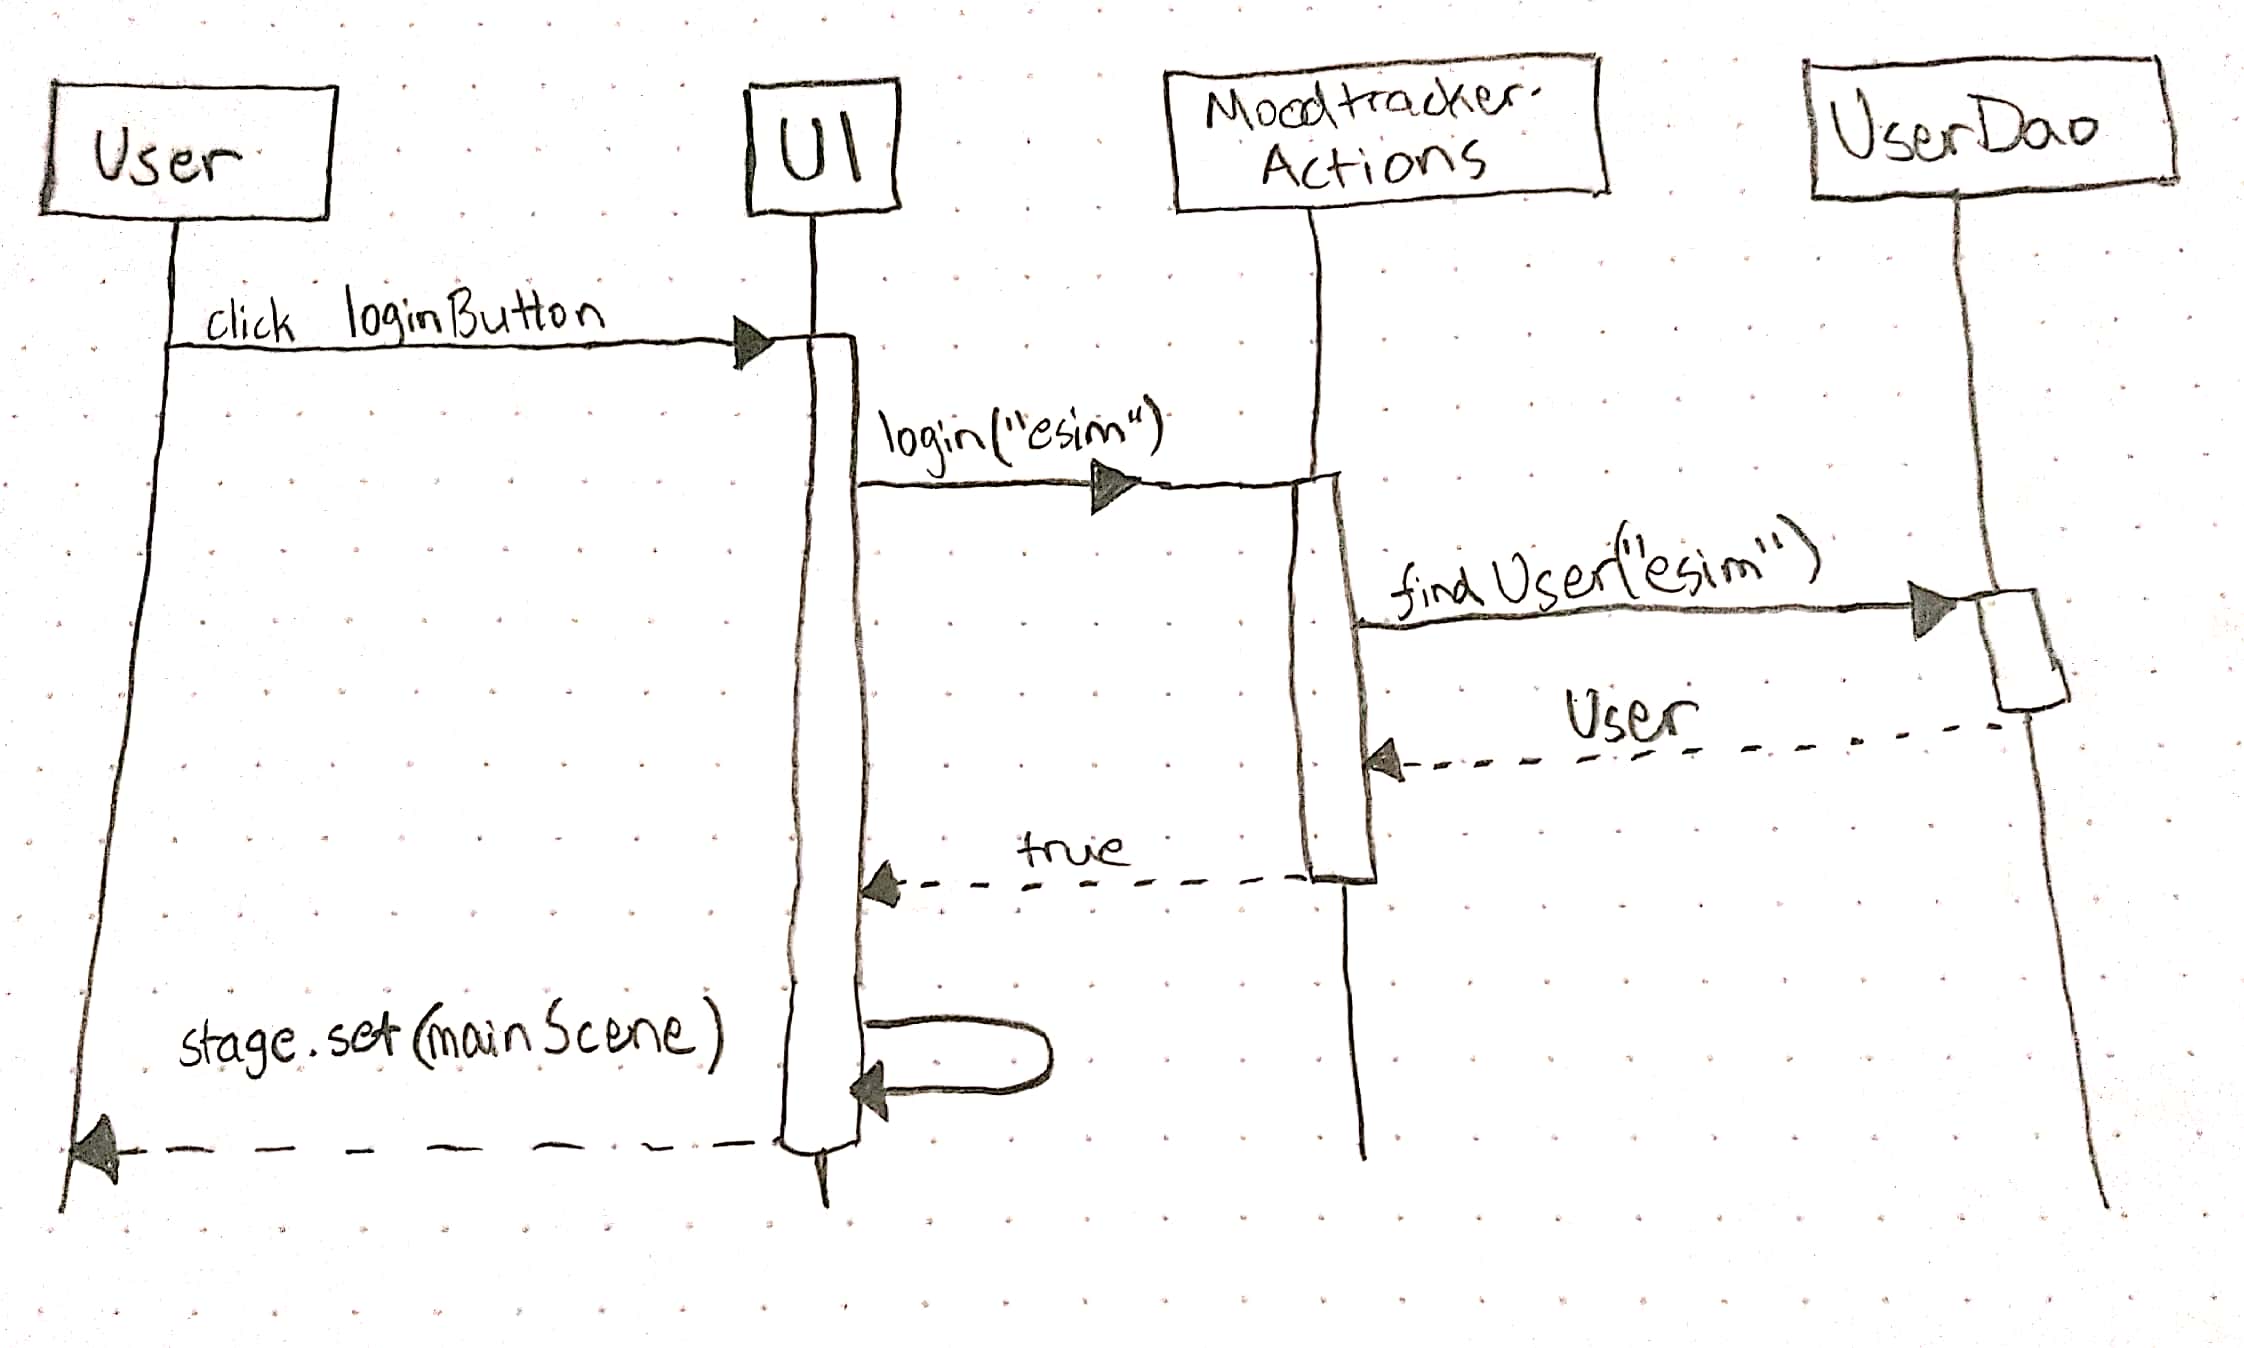 User
UI
Moodtracker-
Actions
UserDao
click loginButton
login("esim")
findUser("esim")
User
true
stage.set(mainScene)